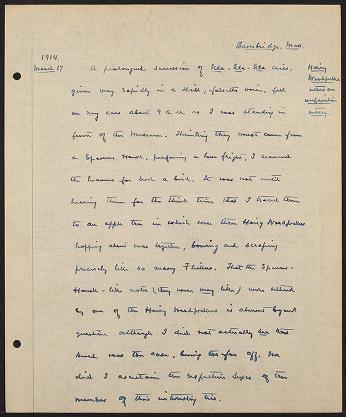 Cambridge, Mass.
1914.
March 17
A prolonged succession of kla-kla-kla cries,
given very rapidly in a shrill, falsetto voice, fell
on my ears about 9 a.m. as I was standing in
front of the Museum. Thinking they must come from
a Sparrow Hawk, preparing a love flight, I scanned
the heavens for such a bird. It was not until
hearing them for the third time that I traced them
to an apple tree in which were three Hairy Woodpeckers
hopping about near together, bowing and scraping
precisely like so many Flickers. That the Sparrow-
Hawk-like notes (they were very like) were uttered
by one of the Hairy Woodpeckers is almost beyond
question although I did not actually see that
such was the case, being too far off. Nor
did I ascertain the respective sexes of the
members of this interesting trio.
Hairy
Woodpecker
utters an
unfamiliar